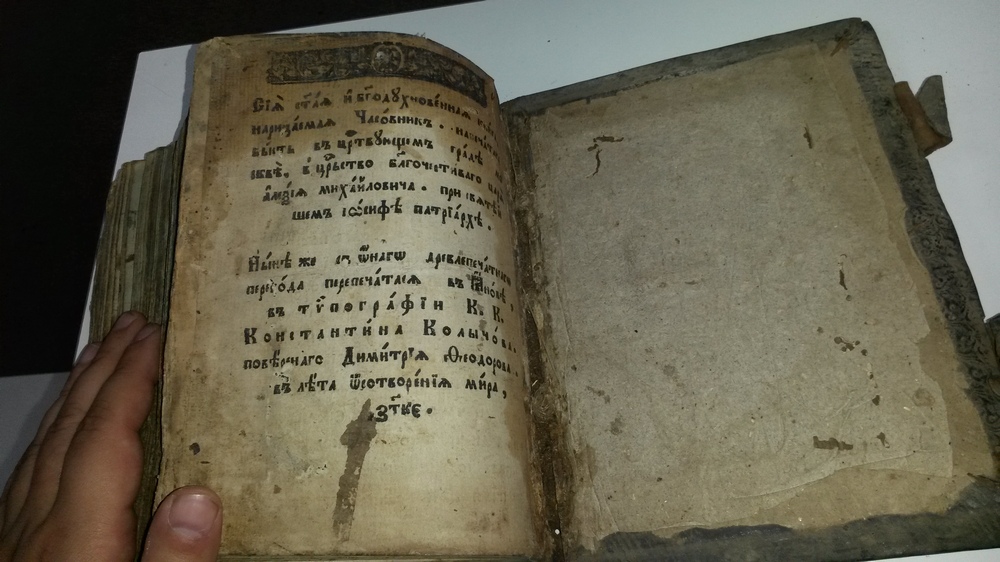 Сїѧ̀ ст҃аѧ и҆ бг҃одꙋхнове́ннаѧ
нарица́емаѧ Часо́вникъ.
бы́ть въ црⷭ҇твꙋющемъ гра́дѣ
сквѣ̀, в црⷭ҇тво бл҃гочести́ваго
Алеѯі́ѧ миха́йловича. при свѧтѣ́й
шемъ іѡ́сифѣ патрїа́рхѣ.
Ны́нѣ же съ ѻ҆́нагѡ древлепеча́тнаго
перево́да перепеча́тасѧ въ
въ тѷпогра́фїи К. К.
Константи́на Колычо́ва.
повѣ́рннаго Дими́трїѧ Ѳео́дорова.
въ лѣ́та ѿ сотворе́нїѧ ми́ра,
҂зт҃ке.